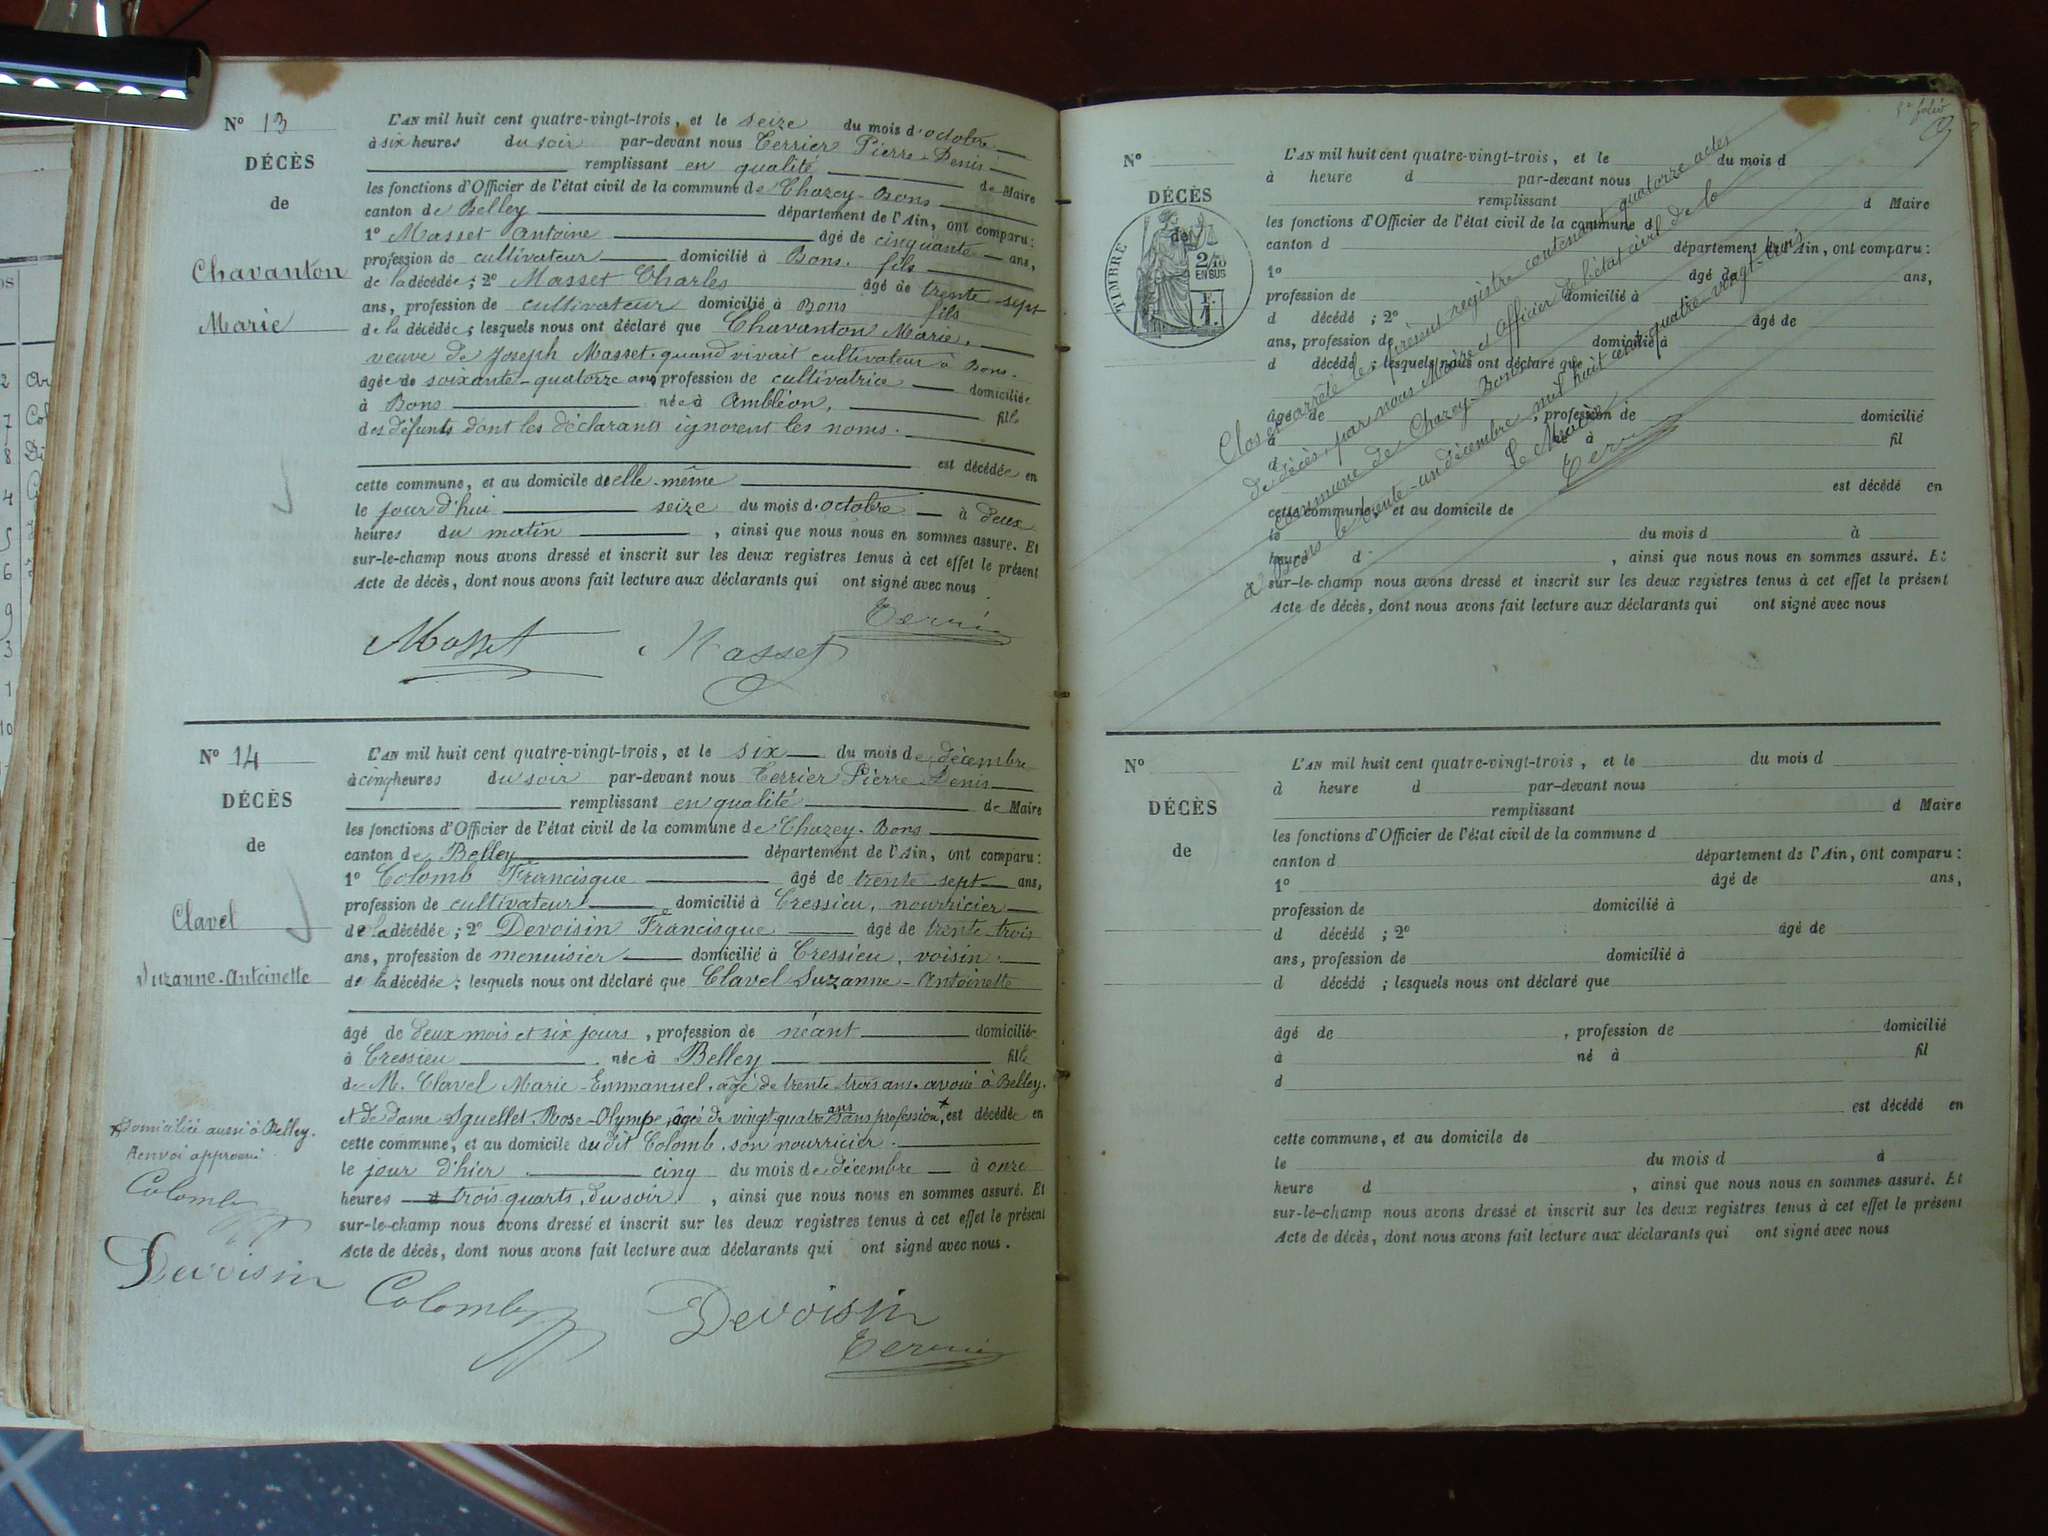 N° 13
DÉCÈS
de
Chavanton
Marie
L'AN mil huit cent quatre-vingt-trois, et le seize du mois d'octobre
à six heures du soir par-devant nous Terrier Pierre-Denis
remplissant en qualité de Maire
les fonctions d'Officier de l'état civil de la commune de Chazey-Bons
canton de Belley département de l'Ain, ont comparu:
1° Masset Antoine âgé de cinquante ans,
profession de cultivateur domicilié à Bons. fils
de la décédée; 2° Masset Charles âgé de trente-sept
ans, profession de cultivateur domicilié à Bons fils
de la décédée; lesquels nous ont déclaré que Chavanton Marie,
veuve de Joseph Masset, quand vivait cultivateur à Bons.
âgée de soixante-quatorze ans, profession de cultivatrice domiciliée
à Bons née à Ambléon, fille
des défunts dont les déclarants ignorent les noms.
est décédée en
cette commune, et au domicile d'elle-même
le jour d'hui seize du mois d'octobre à deux
heures du matin, ainsi que nous nous en sommes assuré. Et
sur-le-champ nous avons dressé et inscrit sur les deux registres tenus à cet effet le présent
Acte de décès, dont nous avons fait lecture aux déclarants qui ont signé avec nous
Terrier
Masset Masset
N° 14
DÉCÈS
de
Clavel
Suzanne-Antoinette
L'AN mil huit cent quatre-vingt-trois, et le six du mois de décembre
à cinq heures du soir par-devant nous Terrier Pierre Denis
remplissant en qualité de Maire
les fonctions d'Officier de l'état civil de la commune de Chazey-Bons
canton de Belley département de l'Ain, ont comparu:
1° Colomb Francisque âgé de trente sept ans,
profession de cultivateur domicilié à Cressieu, nourricier
de la décédée; 2° Devoisin Francisque âgé de trente-trois
ans, profession de menuisier domicilié à Cressieu, voisin
de la décédée; lesquels nous ont déclaré que Clavel Suzanne-Antoinette
âgé de deux mois et six jours, profession de néant domiciliée
à Cressieu née à Belley fille
de M. Clavel Marie-Emmanuel, âgé de trente-trois ans, avoué à Belley,
et de dame Sguellet Rose-Olympe, âgée de vingt-quatre ans sans profession,* est décédée en
cette commune, et au domicile du dit Colomb, son nourricier.
le jour d'hier cinq du mois de décembre à onze
heures trois quarts, du soir, ainsi que nous nous en sommes assuré. Et
sur-le-champ nous avons dressé et inscrit sur les deux registres tenus à cet effet le présent
Acte de décès, dont nous avons fait lecture aux déclarants qui ont signé avec nous.
* Domiciliée aussi à Belley.
Renvoi approuvé
Colomb
Devoisin
Colomb Devoisin
Terrier
N°
DÉCÈS
de
TIMBRE
2/10
EN SUS
F.
1.
L'AN mil huit cent quatre-vingt-trois, et le du mois d
à heure d par-devant nous
remplissant d Maire
les fonctions d'Officier de l'état civil de la commune d
canton d département de l'Ain, ont comparu:
1° âgé de ans,
profession de domicilié à
d décédé; 2° âgé de
ans, profession de domicilié à
d décédé; lesquels nous ont déclaré que
âgé de, profession de domicilié
à né à fil
d
est décédé en
cette commune, et au domicile de
le du mois d à
heure d, ainsi que nous nous en sommes assuré. Et
sur-le-champ nous avons dressé et inscrit sur les deux registres tenus à cet effet le présent
Acte de décès, dont nous avons fait lecture aux déclarants qui ont signé avec nous
Clos et arrêté le présent registre contenant quatorze actes
de décès, par nous Maire et Officier de l'état civil de la
commune de Chazey-Bons
le trente-un décembre mil huit cent quatre-vingt-trois
Le Maire
Terrier
N°
DÉCÈS
de
L'AN mil huit cent quatre-vingt-trois, et le du mois d
à heure d par-devant nous
remplissant d Maire
les fonctions d'Officier de l'état civil de la commune d
canton d département de l'Ain, ont comparu:
1° âgé de ans,
profession de domicilié à
d décédé; 2° âgé de
ans, profession de domicilié à
d décédé; lesquels nous ont déclaré que
âgé de, profession de domicilié
à né à fil
d
est décédé en
cette commune, et au domicile de
le du mois d à
heure d, ainsi que nous nous en sommes assuré. Et
sur-le-champ nous avons dressé et inscrit sur les deux registres tenus à cet effet le présent
Acte de décès, dont nous avons fait lecture aux déclarants qui ont signé avec nous